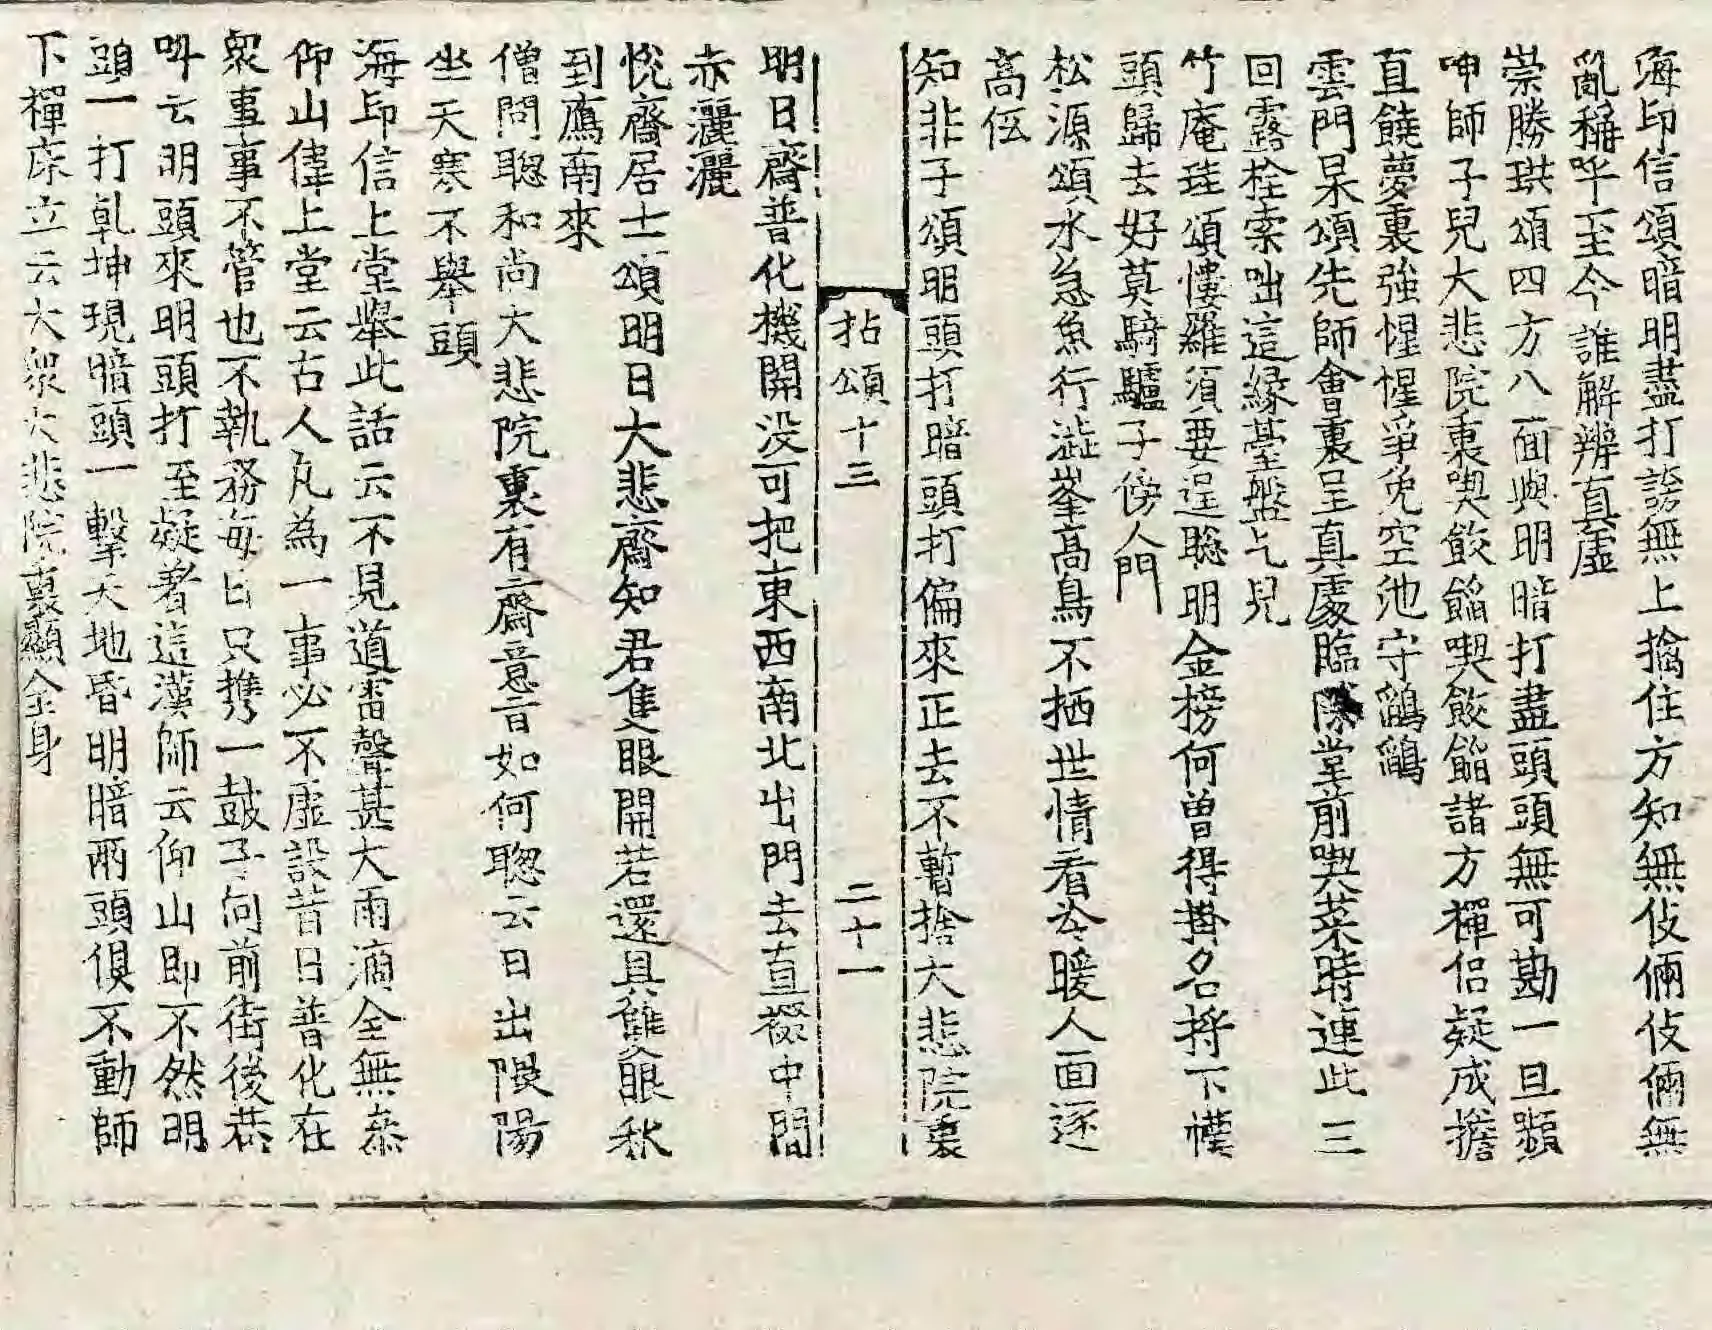 海印信頌暗明盡打謗無上擒住方知無伎倆伎倆無
亂稱呼至今誰解辨真虛
崇勝珙頌四方八面與明暗打盡頭頭無可勘一旦顯
呻師子兒大悲院裏喫餕餡喫餕餡諸方禪侶疑成擔
直饒夢裏強惺惺爭免空池守鸂鶒
雲門杲頌先師會裏呈真處臨際堂前喫菜時連此三
回露栓索咄這緣臺盤乞兒
竹庵珪頌慺羅須要逞聦明金榜何曾得掛名捋下襆
頭歸去好莫騎驢子傍人門
松源頌水急魚行澁峯高鳥不栖世情看冷暖人面逐
高低
知非子頌明頭打暗頭打偏來正去不暫捨大悲院裏
拈頌十三 二十一
明日齋普化機開没可把東西南北出門去直裰中間
赤灑灑
悅齋居士頌明日大悲齋知君隻眼開若還具雙眼秋
到鴈南來
僧問聦和尚大悲院裏有齋意旨如何聦云日出隈陽
坐天寒不舉頭
海印信上堂擧此話云不見道雷聲甚大雨滴全無泰
仰山偉上堂云古人凡為一事必不虛設昔日普化在
衆事事不管也不執務每日只携一鼓子向前街後巷
叫云明頭來明頭打至疑著這漢師云仰山即不然明
頭一打乹坤現暗頭一擊天地昏明暗兩頭俱不動師
下禪床立云大衆大悲院裏顯全身